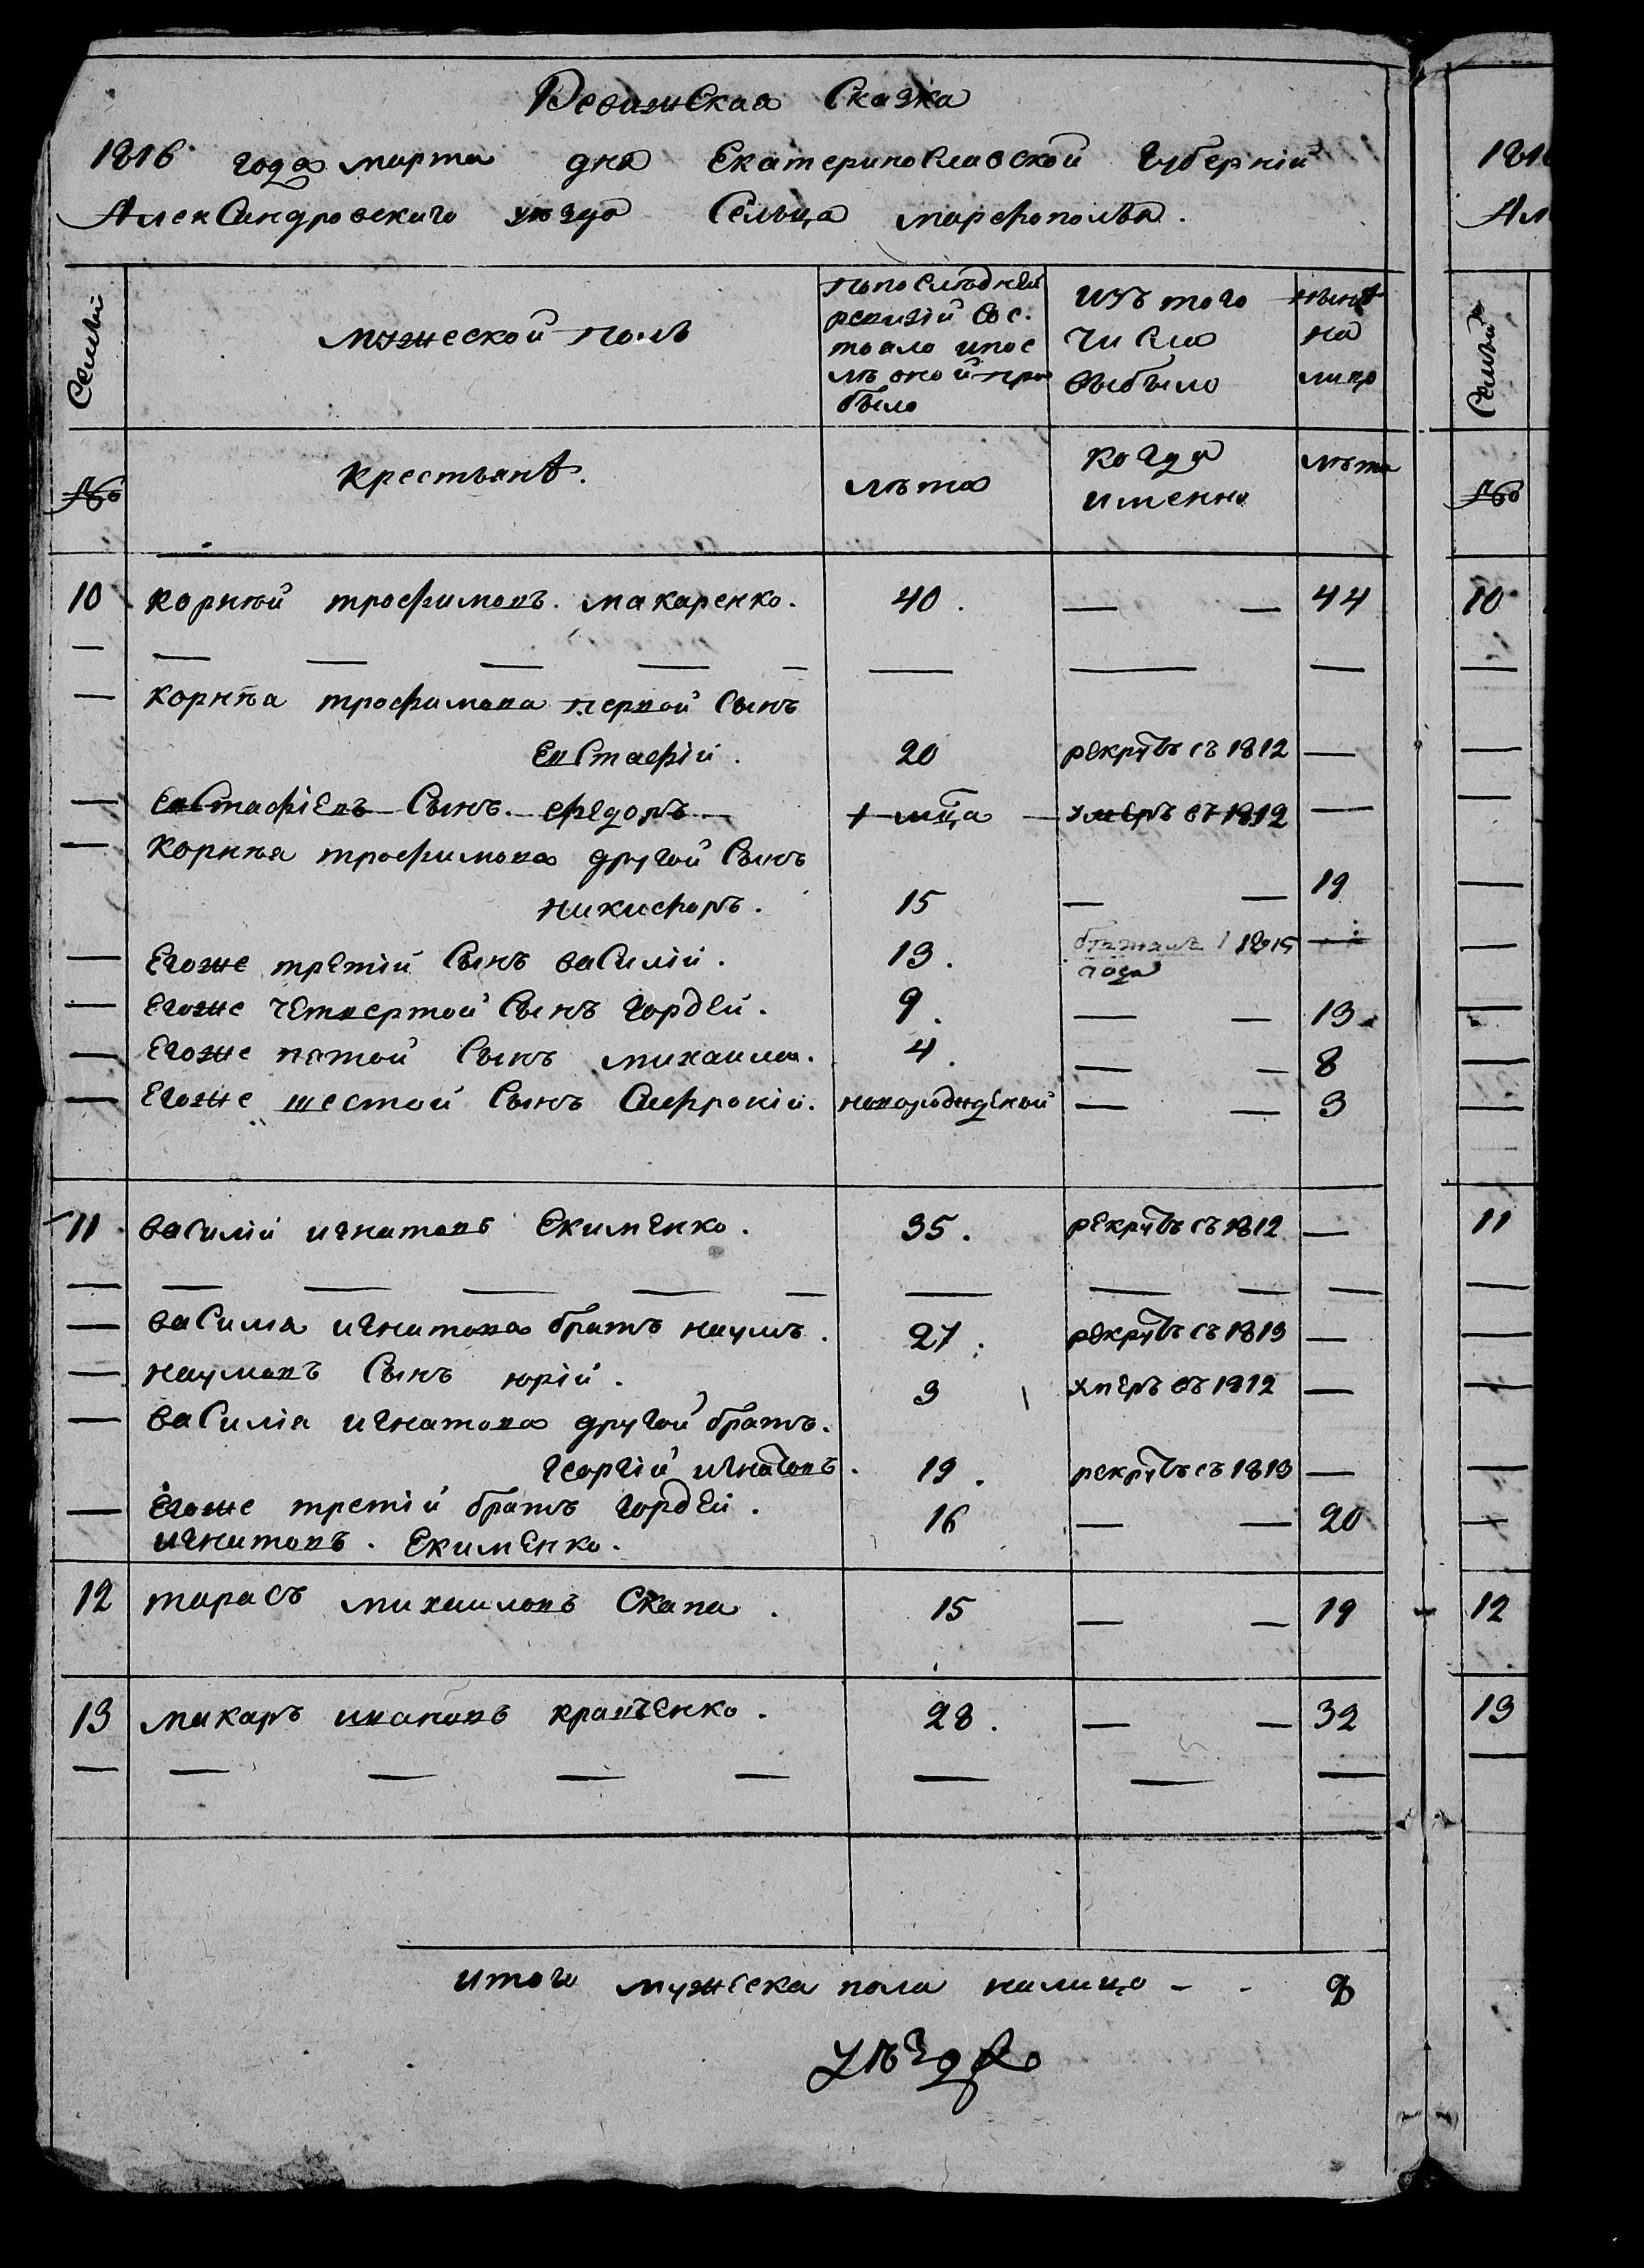 Ревижская Сказка
1816 года марта дня Екатеринославской Губерніи
Александровскаго уѣзда Сельца марфополья.
Семьи
мужеской полъ
попослѣдней
ревизіи сос.
тояло ипос
лѣ оной при
было
изъ того
числа
выбыло
нынѣ
на
лицо
№
крестьянѣ.
лѣта
когда
именно
лѣта
10 корнѣй трофимовъ макаренко. 40. — — 44
корнѣя трофимова первой Сынъ
Евстафій. 20 рекрутъ съ 1812 —
Евстафіевъ Сынъ федоръ 1 мца умеръ въ 1812 —
корнѣя трофимова другой Сынъ
никифоръ. 15 — — 19
Егоже третій Сынъ василій. 13. 1815 —
года
Егоже четвертой Сынъ Гордей. 9. — — 13
Егоже пятой Сынъ михаила. 4. — — 8
Егоже шестой Сынъ Сафроній. новорожденой — — 3
11 василій игнатовъ Екименко. 35. рекрутъ съ 1812 —
василія игнатова братъ наумъ. 27. рекрутъ съ 1813 —
наумовъ Сынъ юрій. 3 умеръ въ 1812 —
василія игнатова другой братъ.
георгій игнатовъ. 19. рекрутъ съ 1813 —
Егоже третій братъ Гордей. 16 — — 20
игнатовъ. Екименко.
12 тарасъ михаиловъ Скапа. 15 — — 19
13 макаръ ивановъ кравченко. 28. — — 32
итого мужеска пола налицо - - 8
уѣзда
1816
Ал
Семьи
№
10
11
12
13